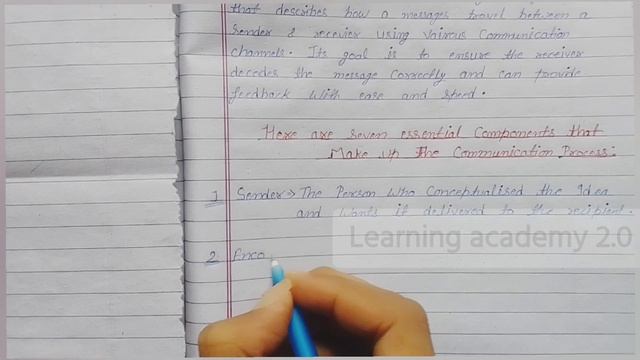 that describes how a messages travel between a
sender & receiver using vairous Communication
channels. Its goal is to ensure the receiver
decodes the message Correctly and can provide
feedback with ease and speed.
Here are seven essential Components that
Make up The Communication Process:
1 Sender → The Person Who Conceptualised the Idea
and wants it delivered to the recipient.
Learning academy 2.0
2 Enco